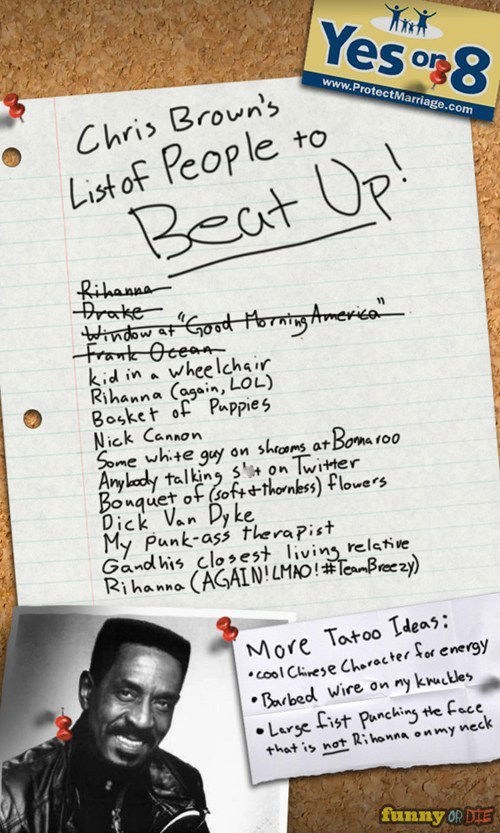 Yes on 8
www.ProtectMarriage.com
Chris Brown's
List of People to
Beat Up!
Rihanna
Drake
Window at "Good Morning America"
Frank Ocean
kid in a wheelchair
Rihanna (again, LOL)
Basket of Puppies
Nick Cannon
Some white guy on shrooms at Bonnaroo
Anybody talking s*t on Twitter
Bouquet of (soft + thornless) flowers
Dick Van Dyke
My punk-ass therapist
Gandhis closest living relative
Rihanna (AGAIN! LMAO! #TeamBreezy)
More Tatoo Ideas:
• cool Chinese Character for energy
• Barbed wire on my knuckles
• Large fist punching the face
that is not Rihanna on my neck
funny OR DIE